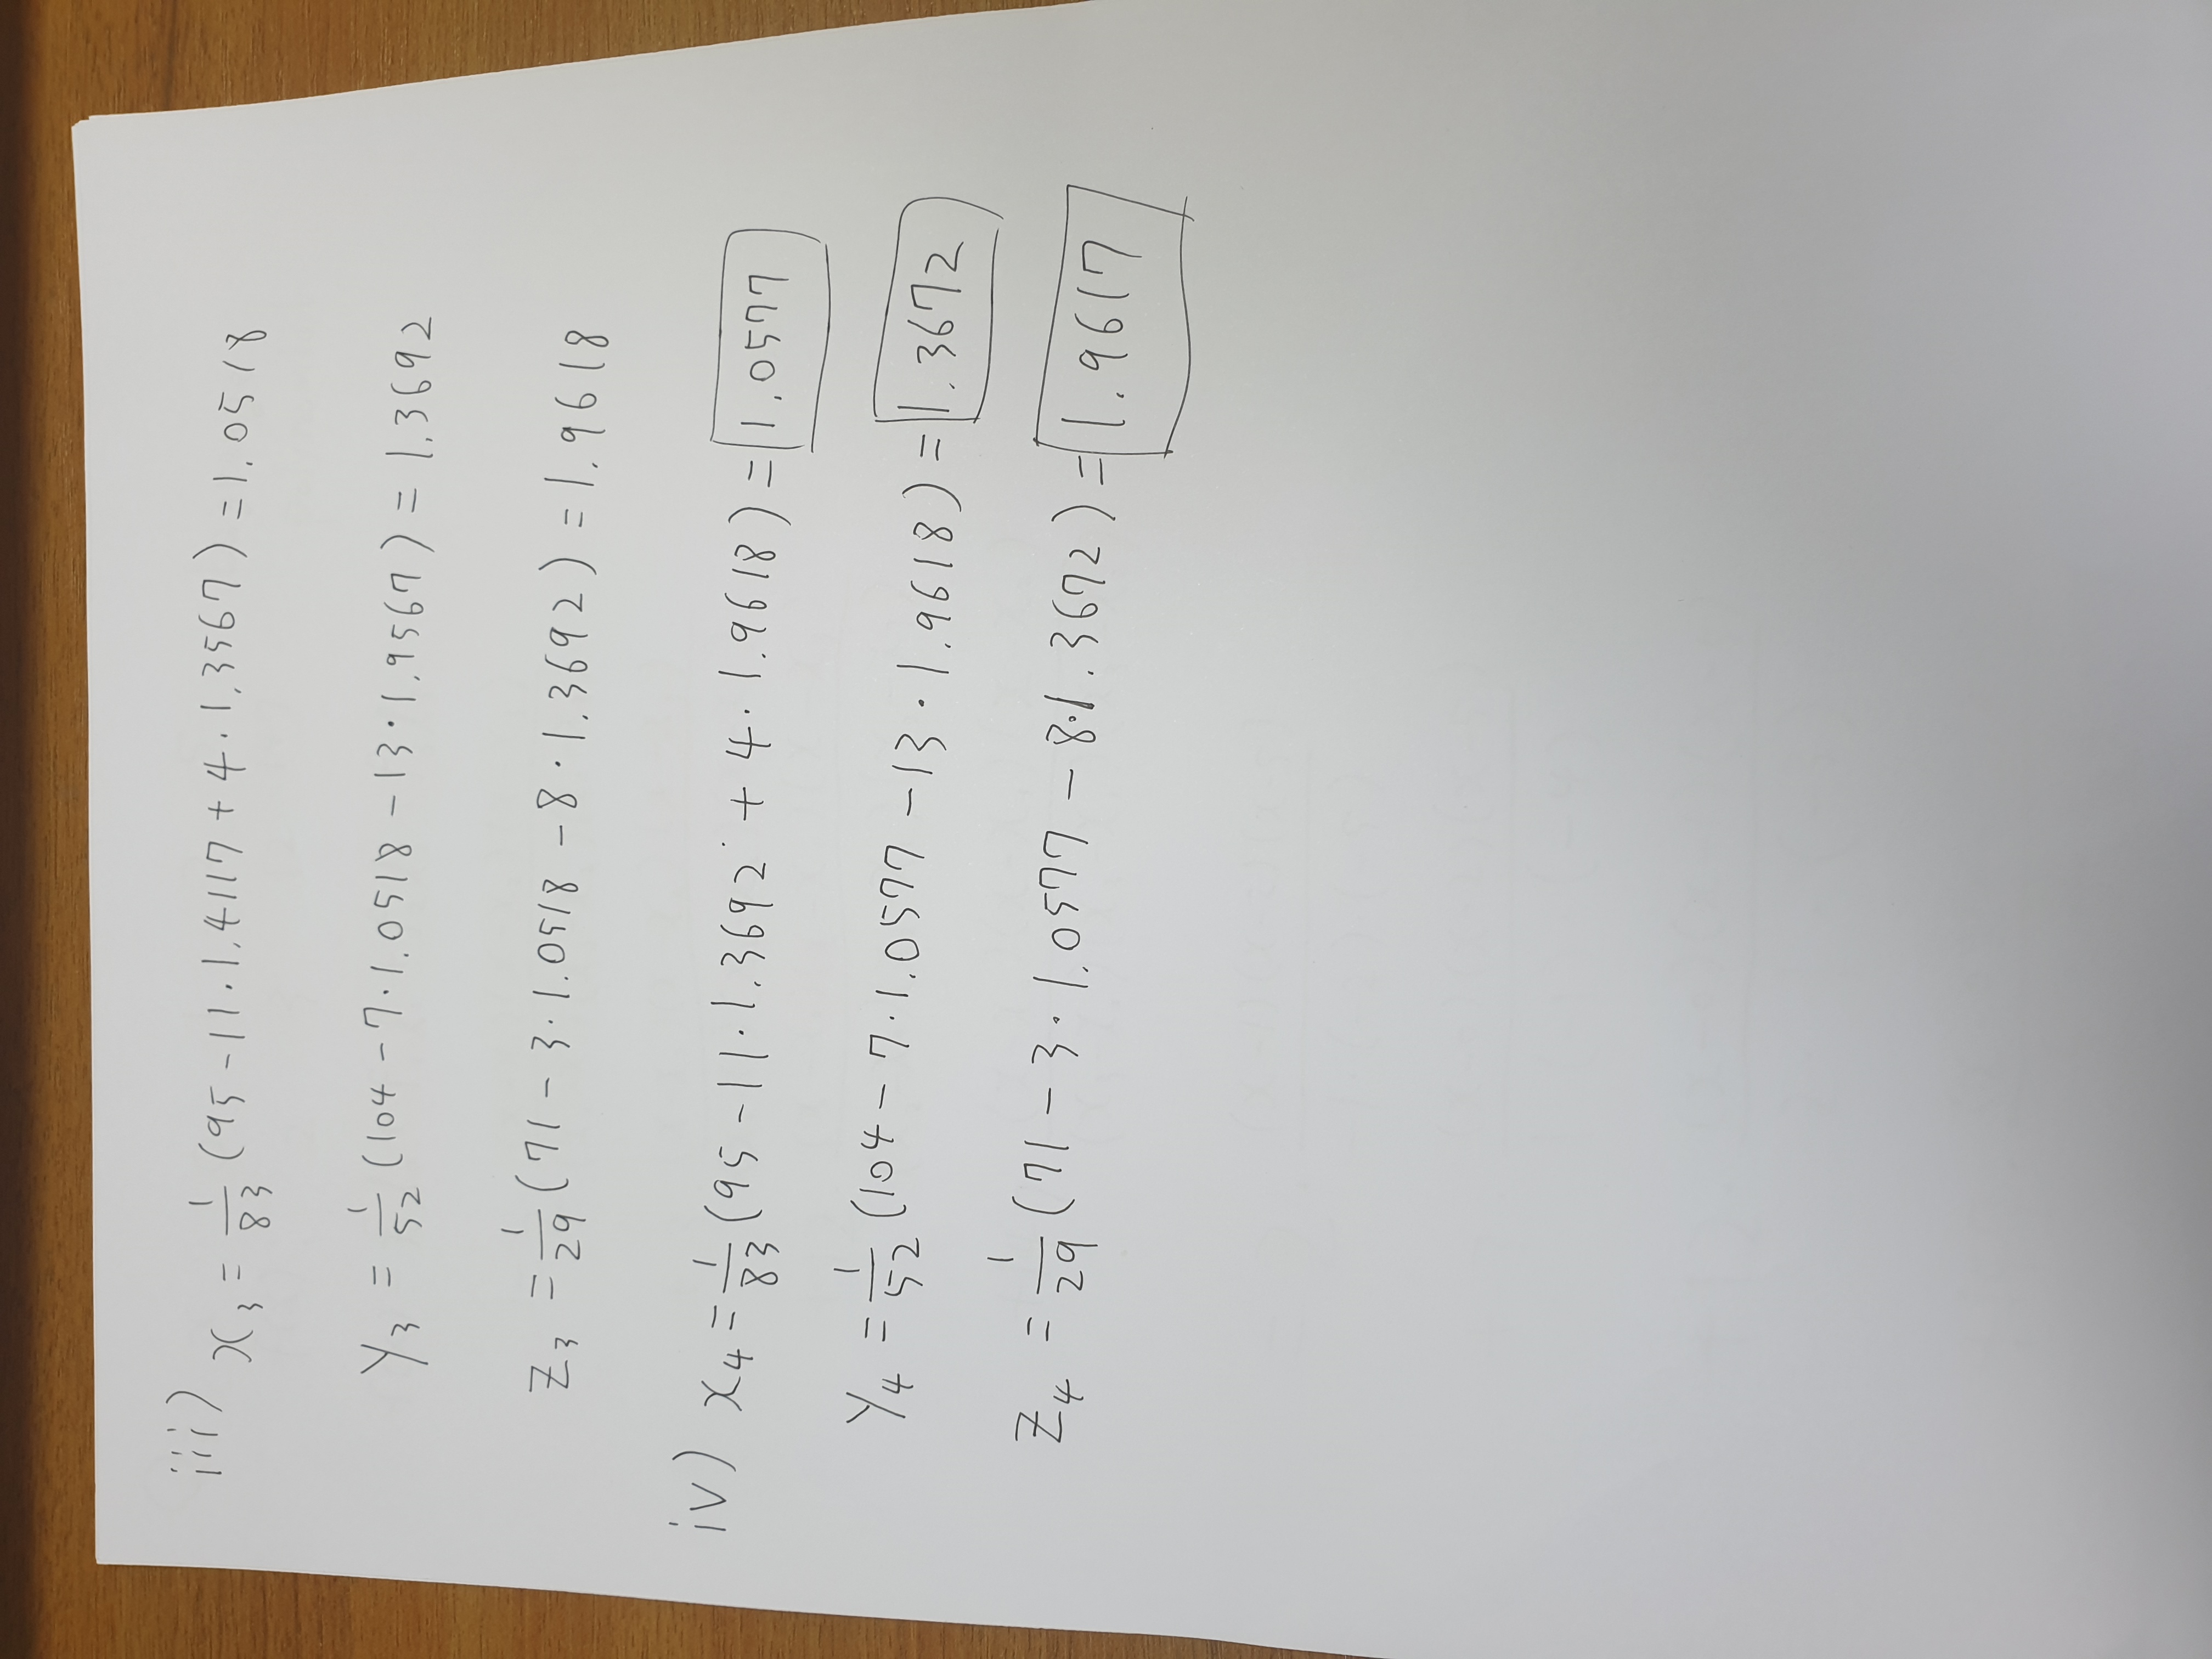 iii) x₃ = 1/83 (95 - 11 · 1.4117 + 4 · 1.3567) = 1.0518
y₃ = 1/52 (104 - 7 · 1.0518 - 13 · 1.9567) = 1.3692
z₃ = 1/29 (71 - 3 · 1.0518 - 8 · 1.3692) = 1.9618
iv) x₄ = 1/83 (95 - 11 · 1.3692 + 4 · 1.9618) = 1.0577
y₄ = 1/52 (104 - 7 · 1.0577 - 13 · 1.9618) = 1.3672
z₄ = 1/29 (71 - 3 · 1.0577 - 8 · 1.3672) = 1.9617